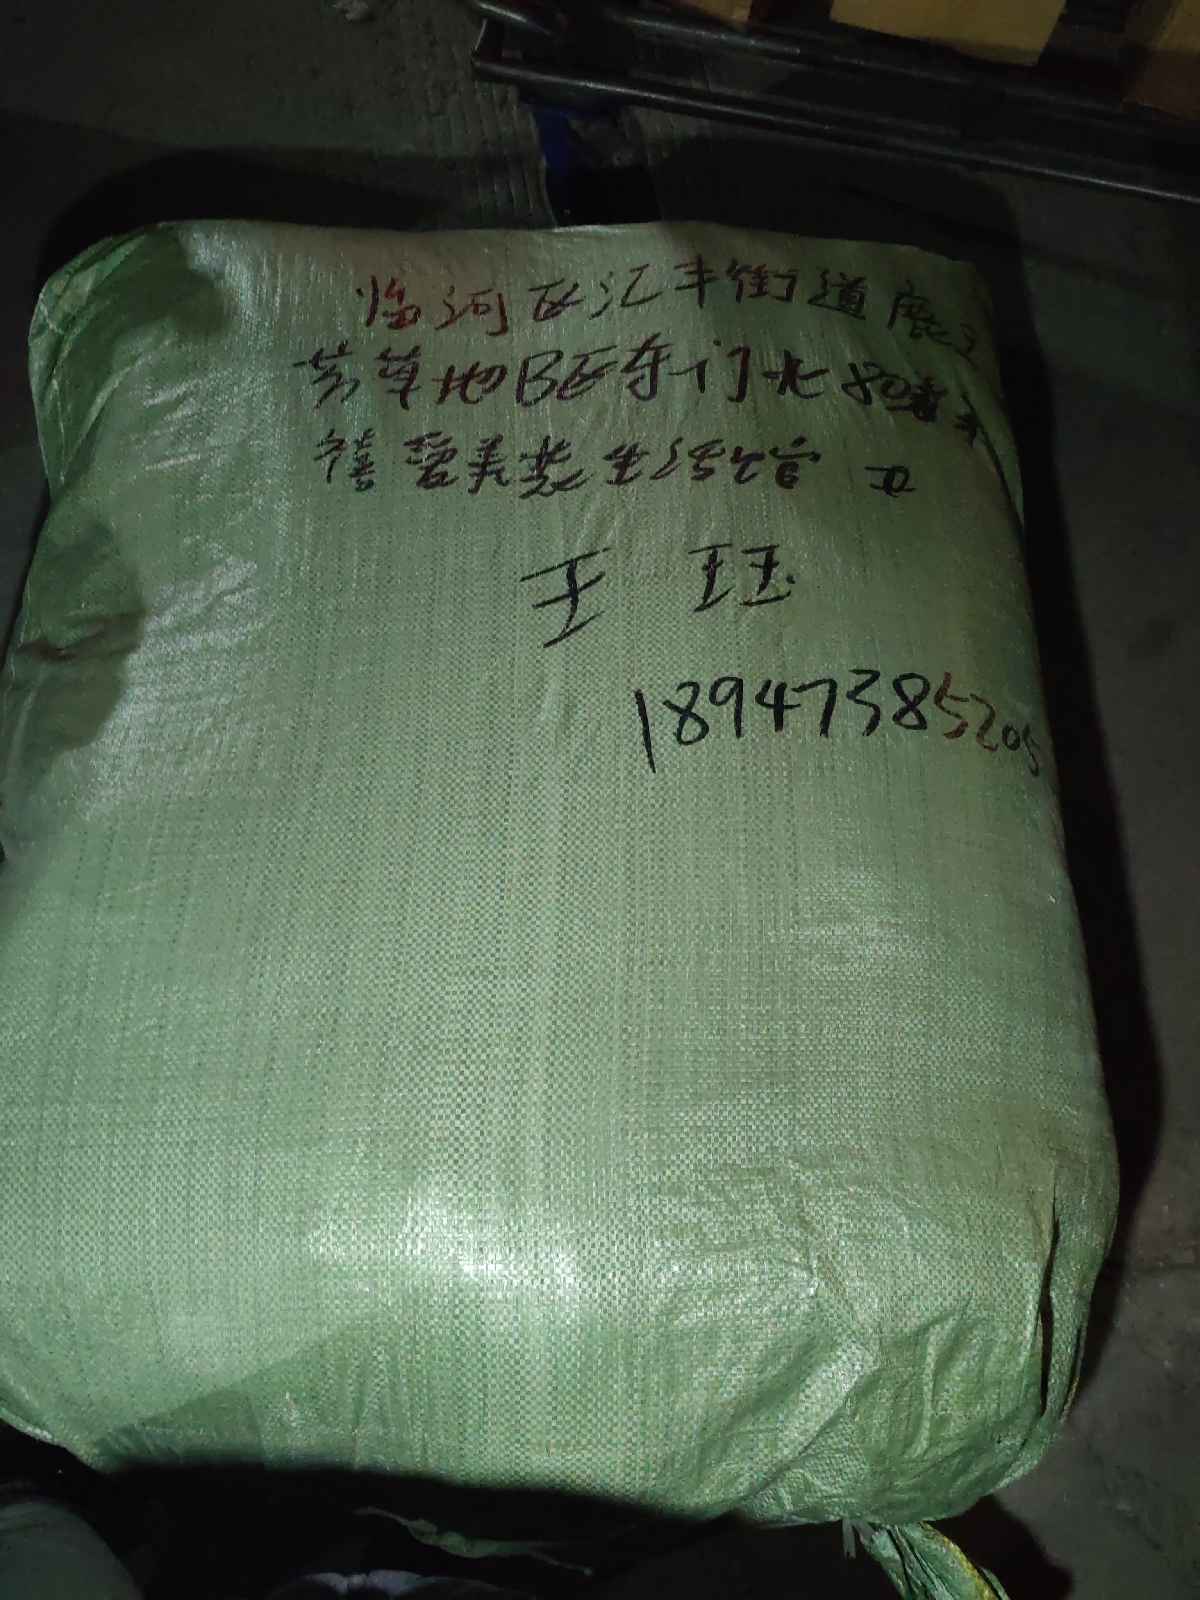 临河区汇丰街道鹿
芳草地B区东门北
禧 美发生活馆
王 珏
18947385205